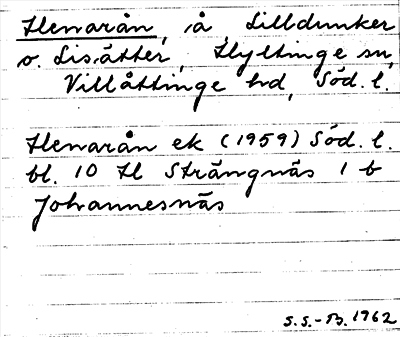 Henarån, å, Lilldunker
o. Lisätter, Hyltinge sn,
Villåttinge hd, Söd. l.
Henarån ek (1959) Söd. l.
bl. 10 H Strängnäs 1 b
Johannesnäs
S.S.-B. 1962